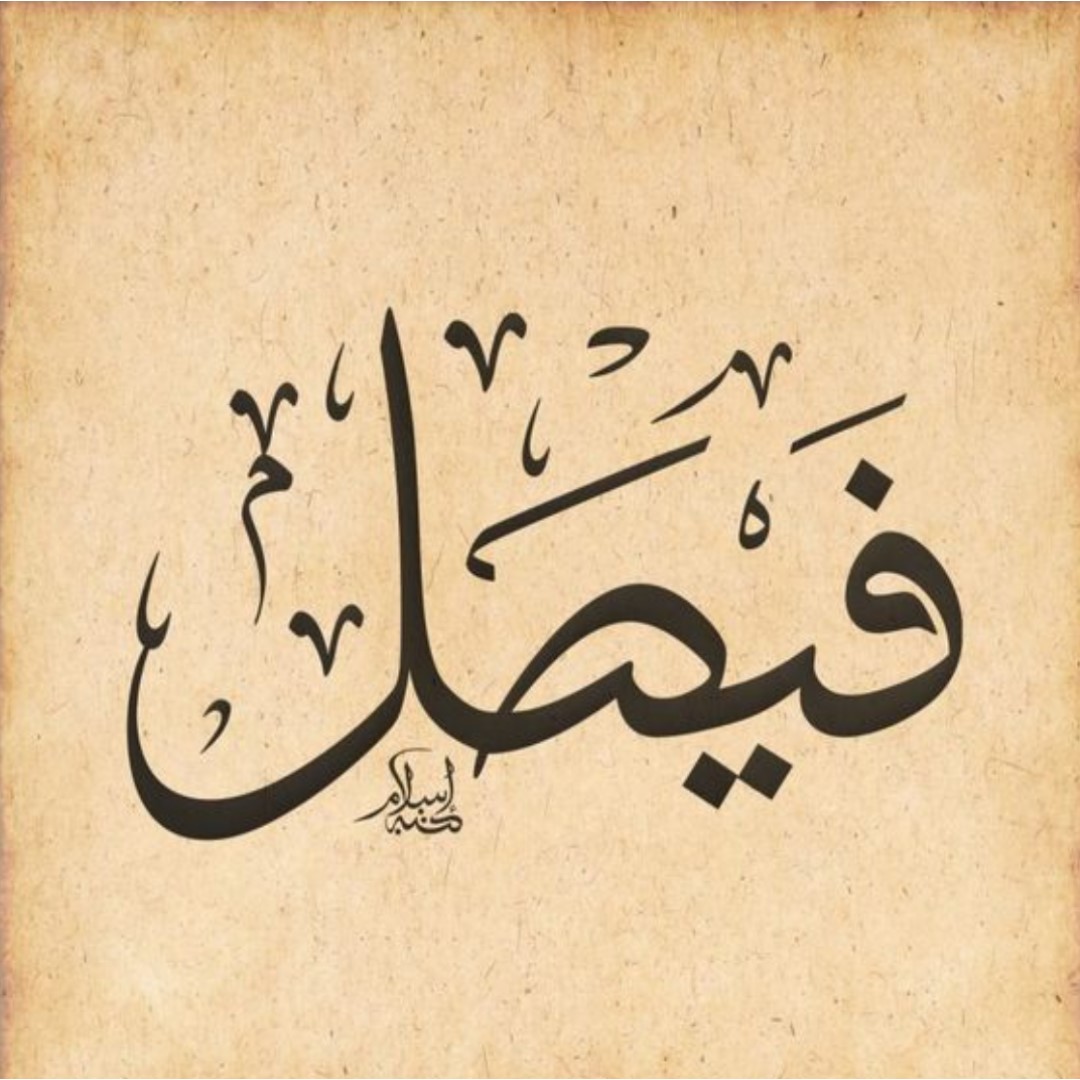 فَيْصَل
كتبه إسلام